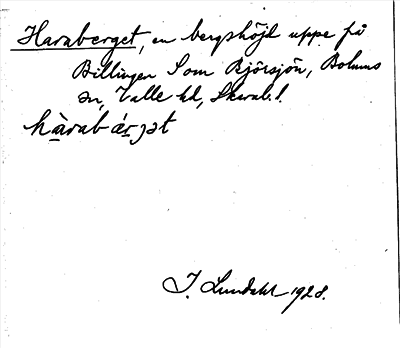 Haraberget, en bergshöjd uppe på
Billingen S om Björsjön, Bolums
sn, Valle hd, Skarab. l.
hàrab ár̯jət
I. Lundahl 1928.